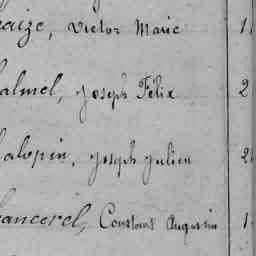 aize, Victor Marie 1
almel, Joseph Félix 2
alopin, Joseph Julien 2
ancerel, Constant Augustin 1